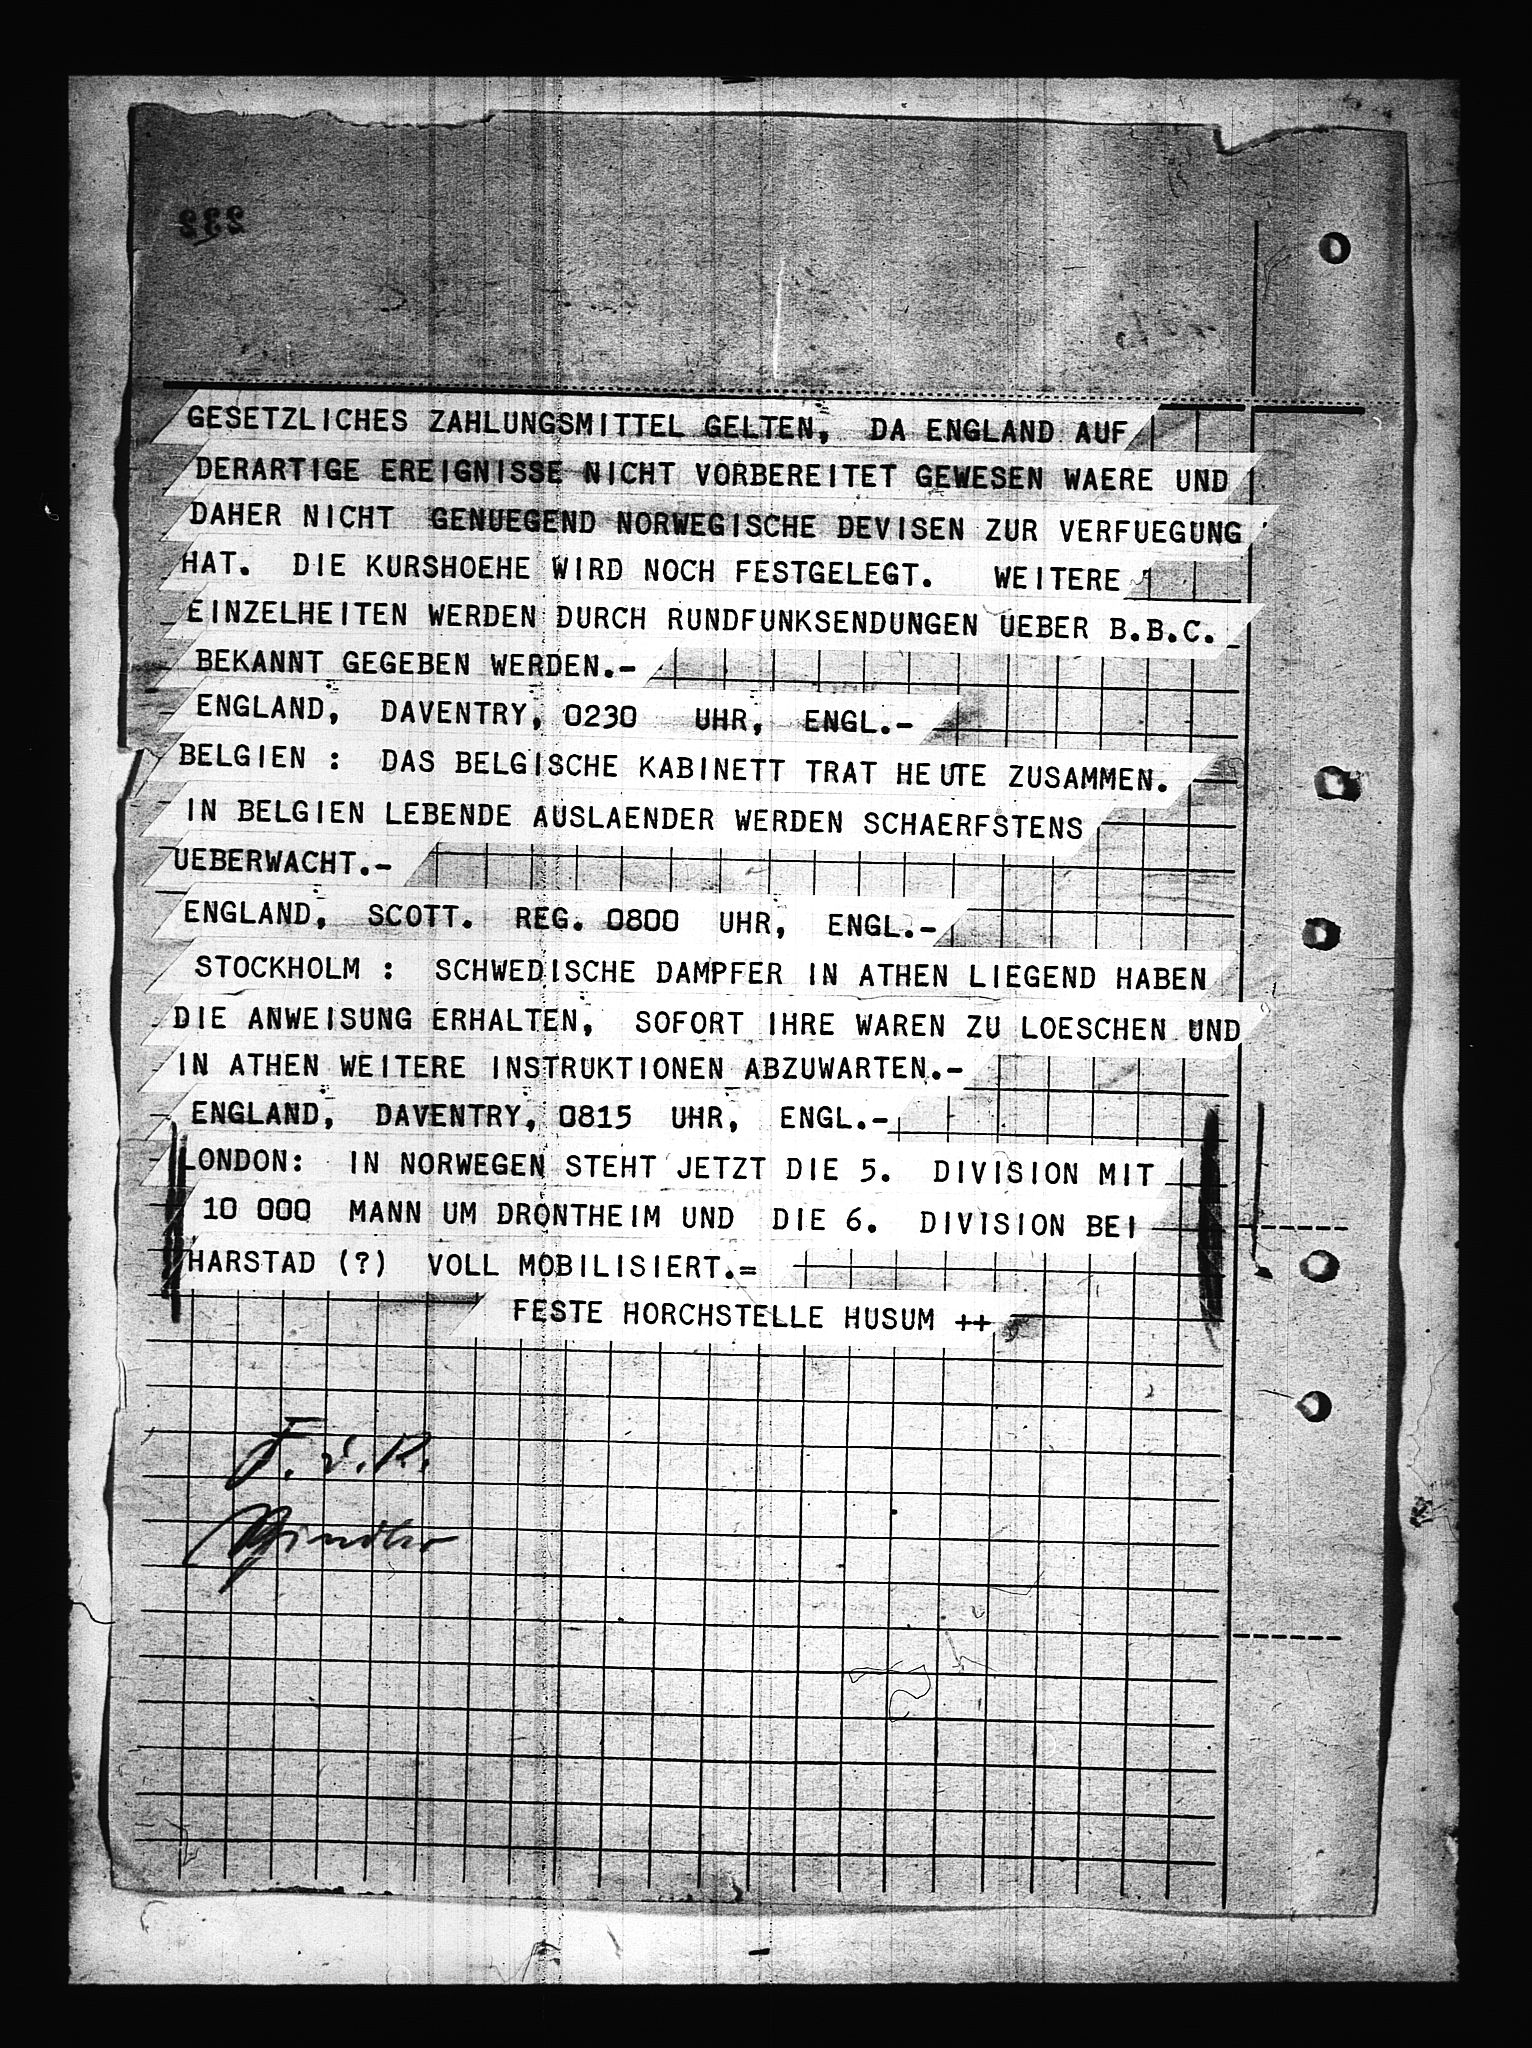 GESETZLICHES ZAHLUNGSMITTEL GELTEN, DA ENGLAND AUF
DERARTIGE EREIGNISSE NICHT VORBEREITET GEWESEN WAERE UND
DAHER NICHT GENUEGEND NORWEGISCHE DEVISEN ZUR VERFUEGUNG
HAT. DIE KURSHOEHE WIRD NOCH FESTGELEGT. WEITERE
EINZELHEITEN WERDEN DURCH RUNDFUNKSENDUNGEN UEBER B.B.C.
BEKANNT GEGEBEN WERDEN.-
ENGLAND, DAVENTRY, 0230 UHR, ENGL.-
BELGIEN : DAS BELGISCHE KABINETT TRAT HEUTE ZUSAMMEN.
IN BELGIEN LEBENDE AUSLAENDER WERDEN SCHAERFSTENS
UEBERWACHT.-
ENGLAND, SCOTT. REG. 0800 UHR, ENGL.-
STOCKHOLM : SCHWEDISCHE DAMPFER IN ATHEN LIEGEND HABEN
DIE ANWEISUNG ERHALTEN, SOFORT IHRE WAREN ZU LOESCHEN UND
IN ATHEN WEITERE INSTRUKTIONEN ABZUWARTEN.-
ENGLAND, DAVENTRY, 0815 UHR, ENGL.-
LONDON: IN NORWEGEN STEHT JETZT DIE 5. DIVISION MIT
10 000 MANN UM DRONTHEIM UND DIE 6. DIVISION BEI
HARSTAD (?) VOLL MOBILISIERT.=
FESTE HORCHSTELLE HUSUM ++
F. d. R.